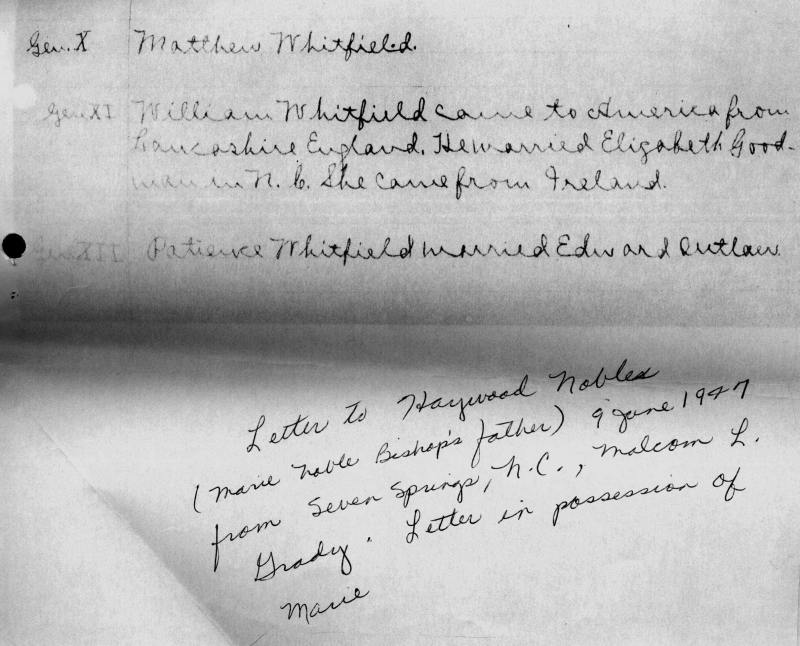 Gen. X Matthew Whitfield.
Gen XI William Whitfield came to America from
Lancashire England. He married Elizabeth Good-
man in N. C. She came from Ireland.
Gen. XII Patience Whitfield married Edward Outlaw
Letter to Haywood Nobles
(Marie Noble Bishop's father) 9 June 1947
from Seven Springs, N.C., Malcom L.
Grady. Letter in possession of
Marie